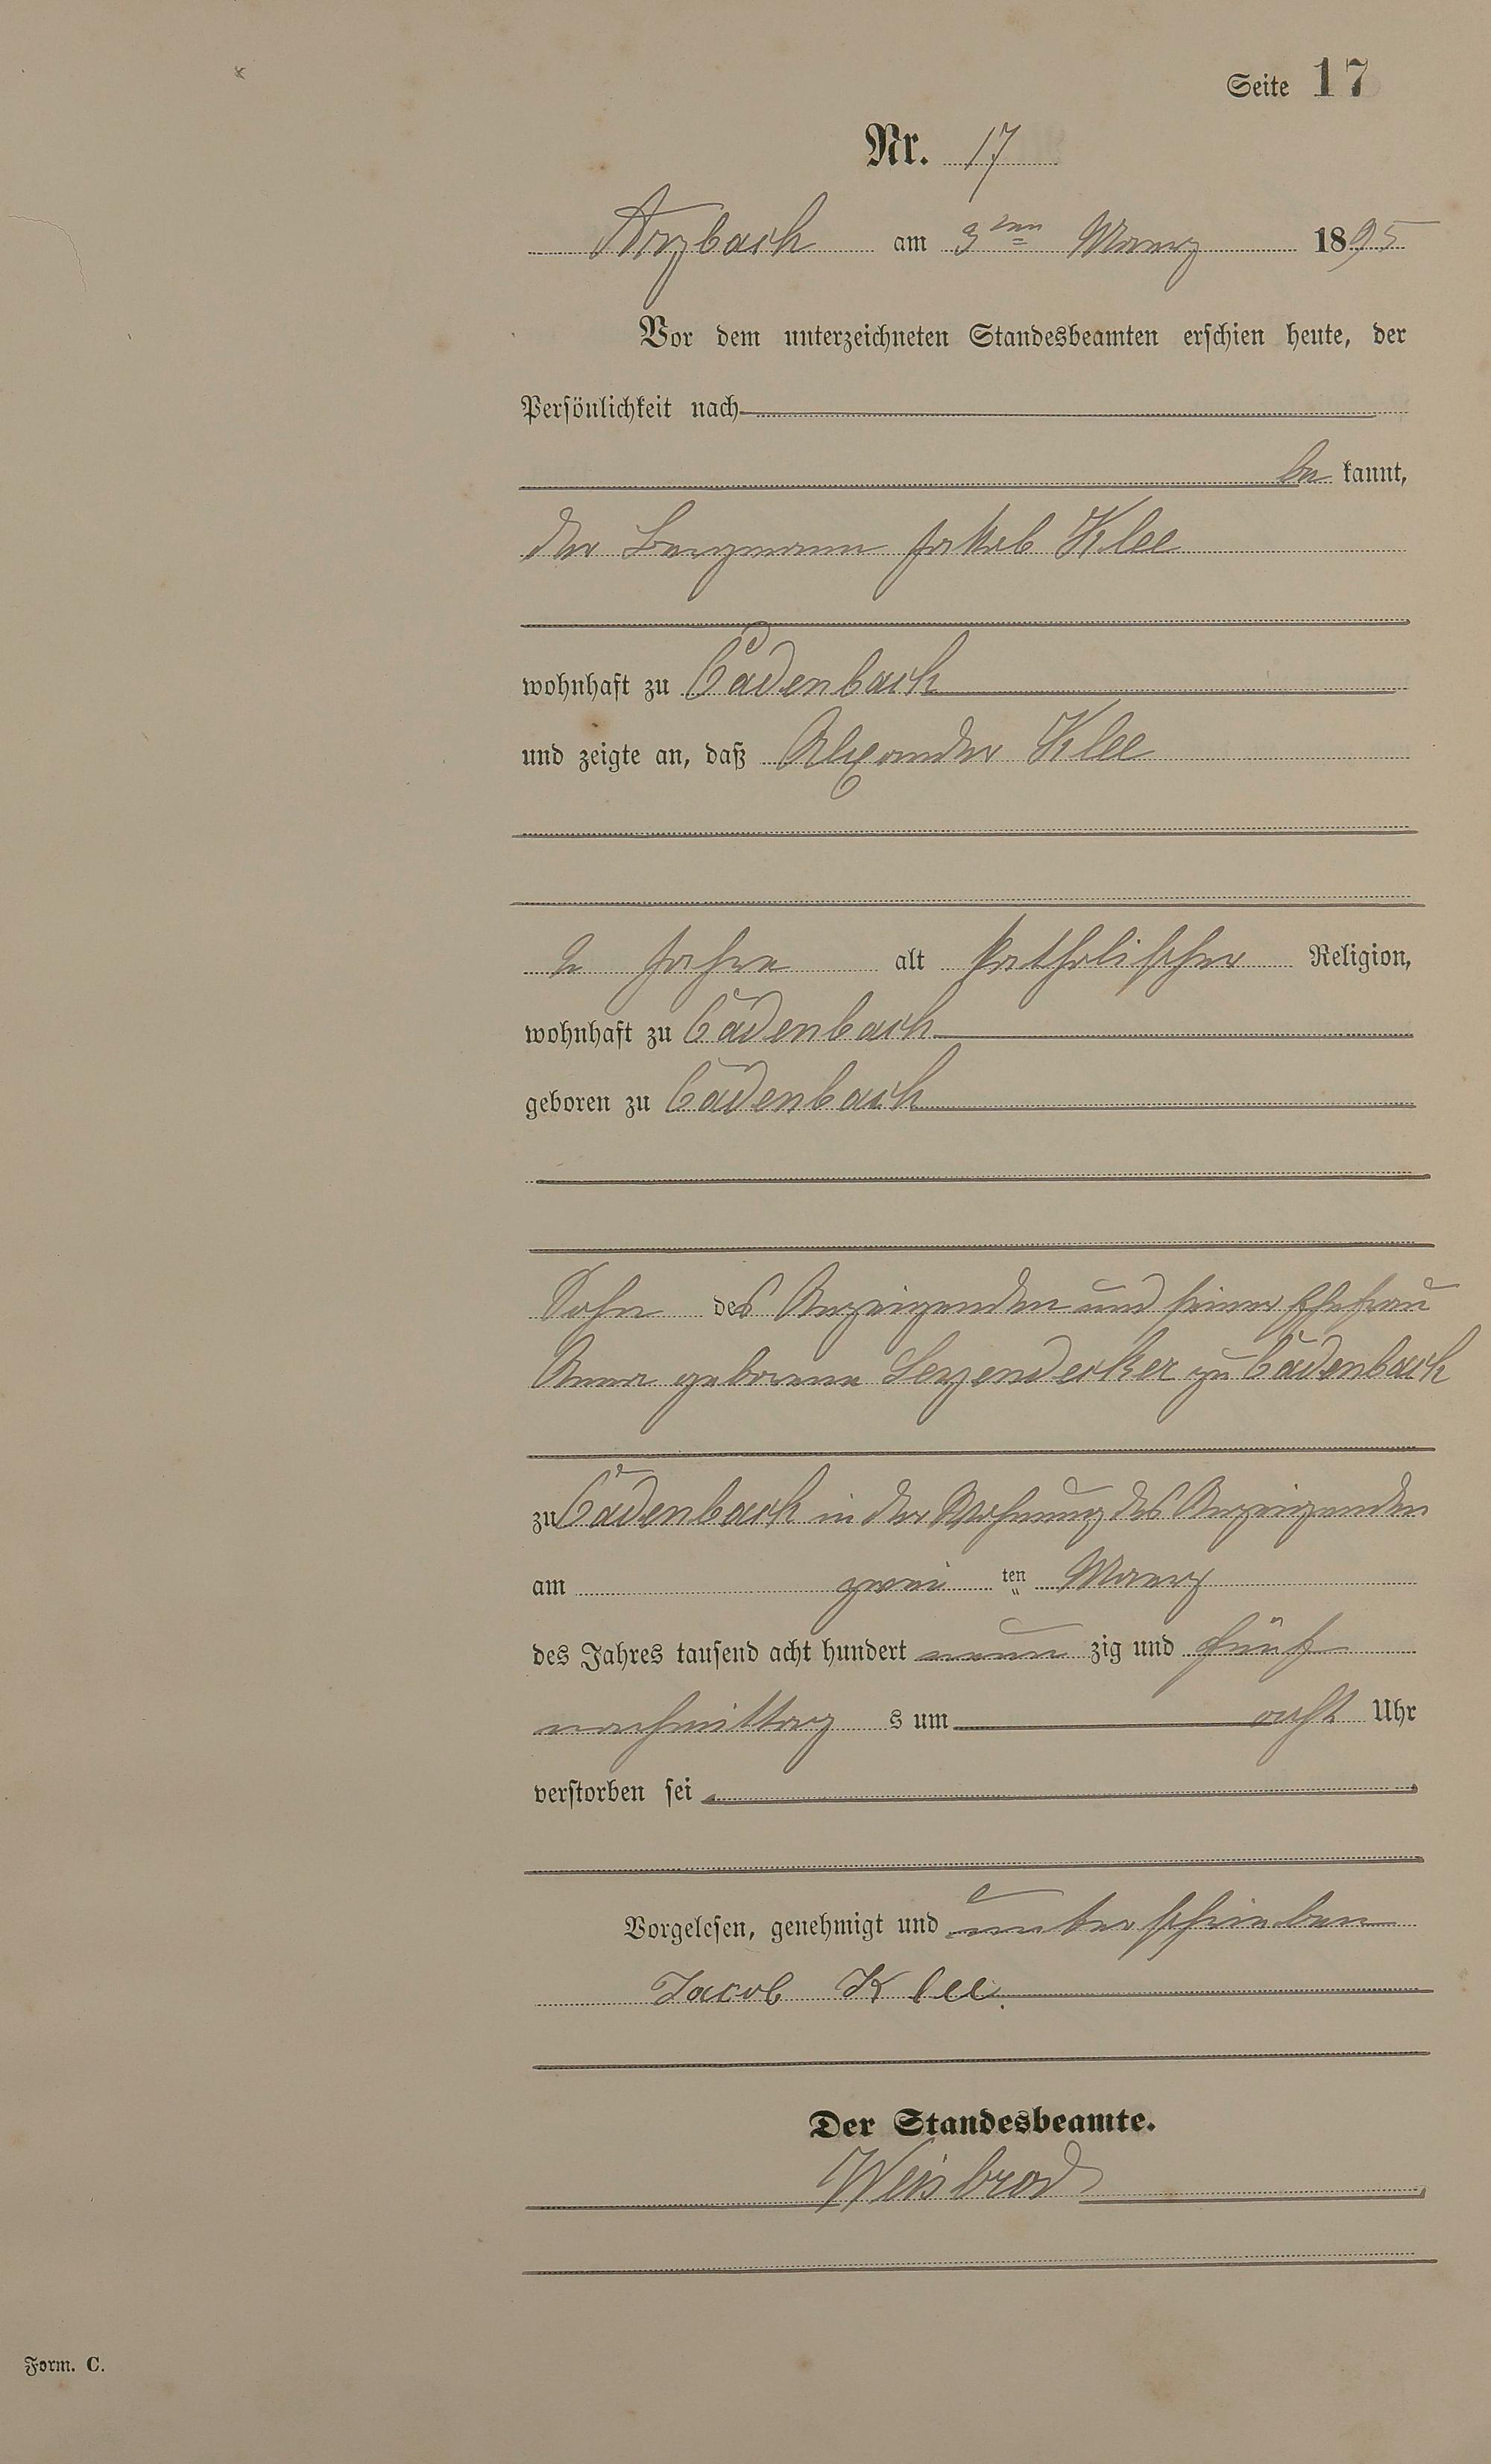 Seite 17
Nr. 17
Arzbach am 3ten Maerz 1895
Vor dem unterzeichneten Standesbeamten erschien heute, der
Persönlichkeit nach
be kannt,
der Bergmann Jakob Klee
wohnhaft zu Cadenbach
und zeigte an, daß Alexander Klee
2 Jahre alt katholischer Religion,
wohnhaft zu Cadenbach
geboren zu Cadenbach
Sohn des Anzeigenden und seiner Ehefrau
Anna geborene zu Cadenbach
zu Cadenbach in der Wohnung des Anzeigenden
am zwei ten Maerz
des Jahres tausend acht hundert neun zig und fünf
nachmittag s um acht Uhr
verstorben sei
Vorgelesen, genehmigt und unterschrieben
Jacob Klee.
Der Standesbeamte.
Weisbrod
Form. C.